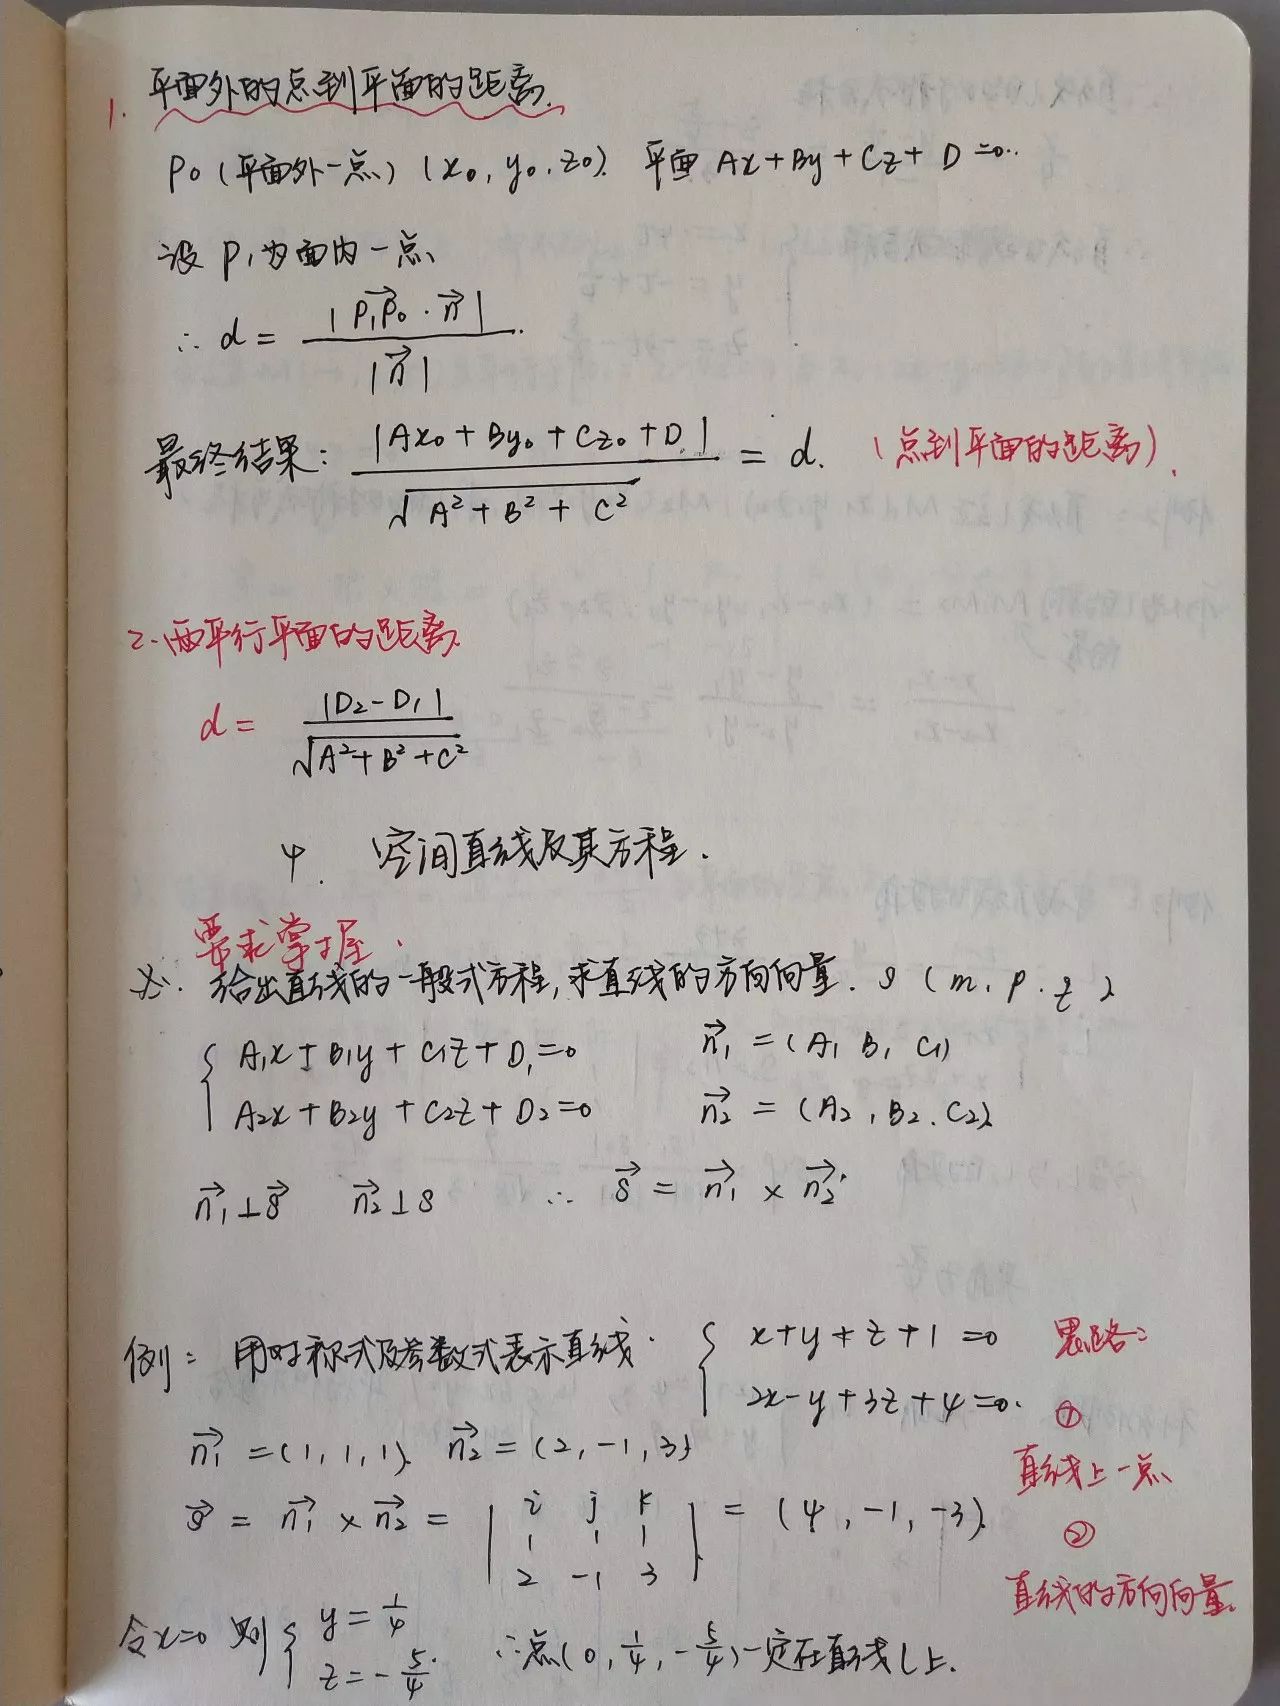 1. 平面外的点到平面的距离.
P0(平面外一点)(x0, y0, z0). 平面 Ax+By+Cz+D=0.
设P1为面内一点、
∴ d = |P1P0 · n| / |n|
最终结果: |Ax0+By0+Cz0+D| / √(A²+B²+C²) = d. (点到平面的距离).
2. 两平行平面的距离.
d = |D2-D1| / √(A²+B²+C²)
4. 空间直线及其方程.
要求掌握.
给出直线的一般式方程, 求直线的方向向量. s (m, p, q)
{ A1x+B1y+C1z+D1=0 n1=(A1 B1 C1)
A2x+B2y+C2z+D2=0 n2=(A2, B2, C2)
n1⊥s n2⊥s ∴ s = n1 × n2
例: 用对称式及参数式表示直线. { x+y+z+1=0 思路:
2x-y+3z+4=0. ①
n1=(1,1,1). n2=(2,-1,3) 直线上一点、
s = n1 × n2 = | i j k | = (4, -1, -3).
| 1 1 1 | ②
| 2 -1 3 | 直线的方向向量.
令x=0 则 { y=1/4
z=-5/4. ∴点(0, 1/4, -5/4)一定在直线l上.